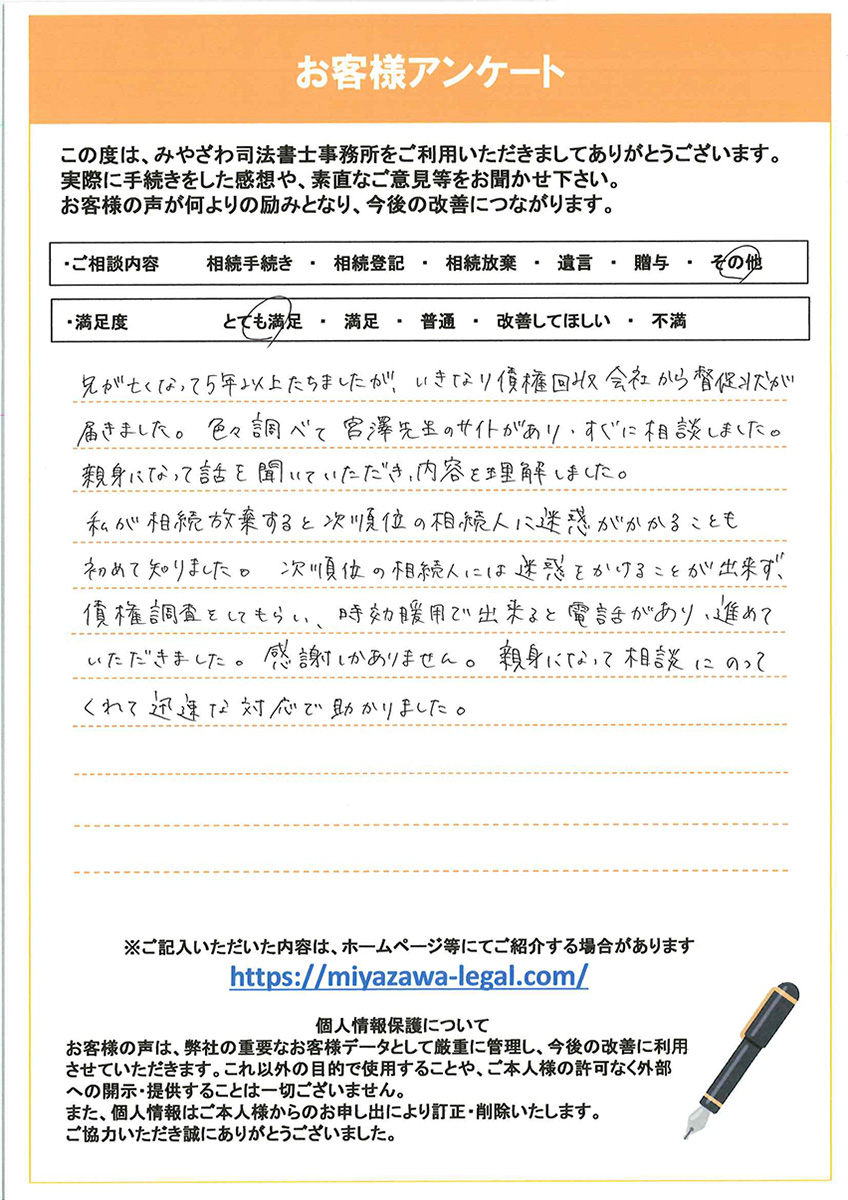 お客様アンケート
この度は、みやざわ司法書士事務所をご利用いただきましてありがとうございます。
実際に手続きをした感想や、素直なご意見等をお聞かせ下さい。
お客様の声が何よりの励みとなり、今後の改善につながります。
・ご相談内容　相続手続き ・ 相続登記 ・ 相続放棄 ・ 遺言 ・ 贈与 ・ その他
・満足度　とても満足 ・ 満足 ・ 普通 ・ 改善してほしい ・ 不満
兄が亡くなって5年以上たちましたが、いきなり債権回収会社から督促状が
届きました。色々調べて宮澤先生のサイトがあり、すぐに相談しました。
親身になって話を聞いていただき、内容を理解しました。
私が相続放棄すると次順位の相続人に迷惑がかかることも
初めて知りました。次順位の相続人には迷惑をかけることが出来ず、
債権調査をしてもらい、時効援用で出来ると電話があり、進めて
いただきました。感謝しかありません。親身になって相談にのって
くれて迅速な対応で助かりました。
※ご記入いただいた内容は、ホームページ等にてご紹介する場合があります
https://miyazawa-legal.com/
個人情報保護について
お客様の声は、弊社の重要なお客様データとして厳重に管理し、今後の改善に利用
させていただきます。これ以外の目的で使用することや、ご本人様の許可なく外部
への開示・提供することは一切ございません。
また、個人情報はご本人様からのお申し出により訂正・削除いたします。
ご協力いただき誠にありがとうございました。